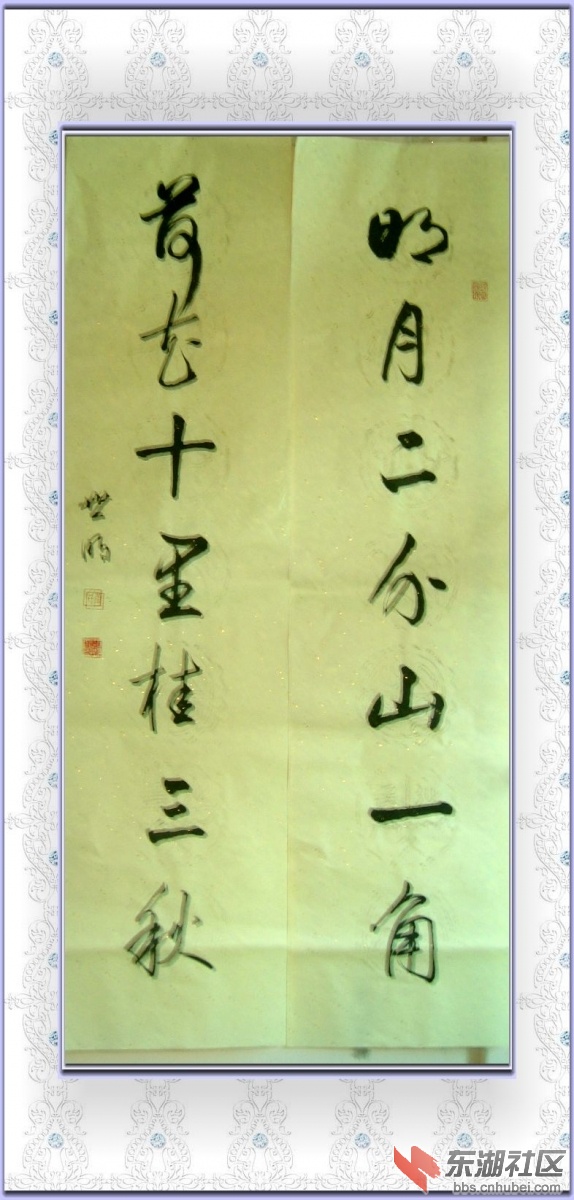 明月二分山一角
荷花十里桂三秋
世明
东湖社区
bbs.cnhubei.com